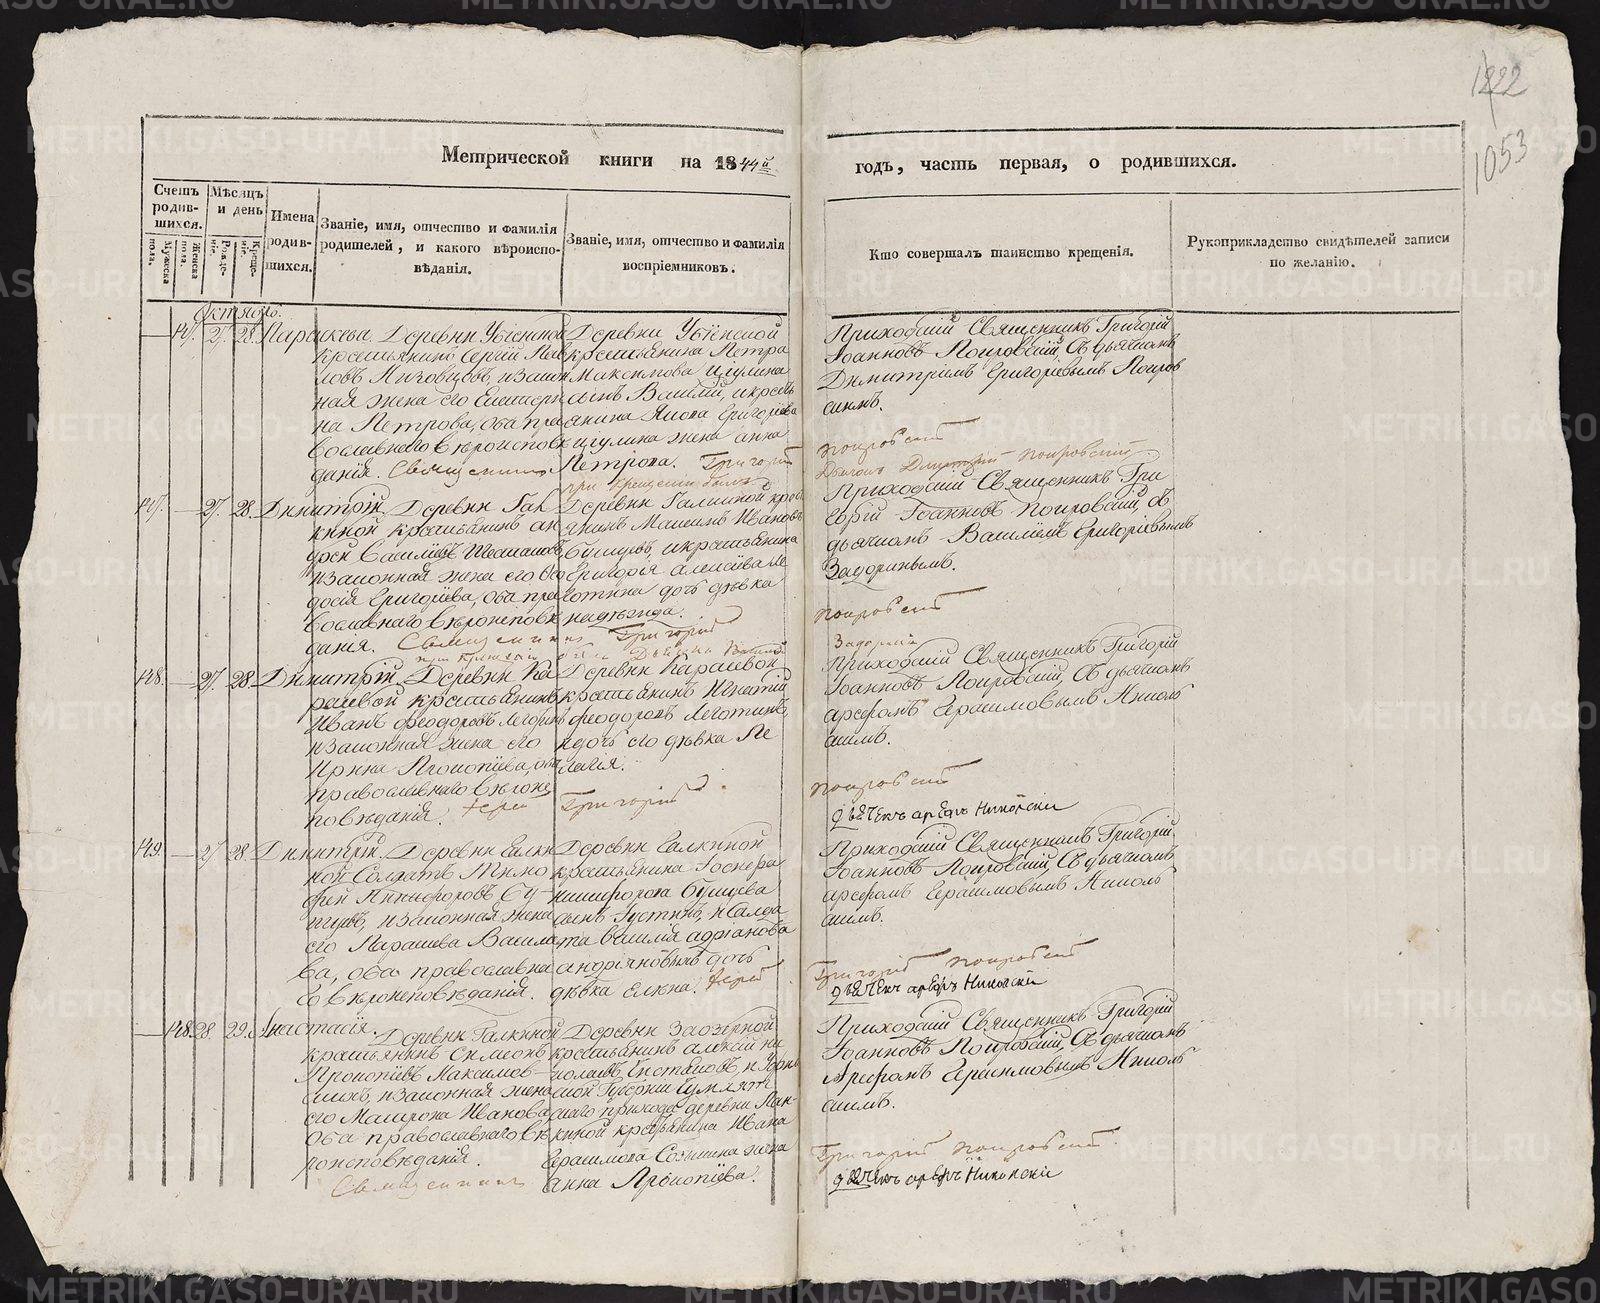 1222
1053
Метрической книги на 1844й
годъ, часть первая, о родившихся.
Счетъ родив-шихся.
Мужеска пола.
Женска пола.
Мѣсяцъ и день
Рожде-нiе.
Креще-нiе.
Имена родив-шихся.
Званіе, имя, отчество и фамилія родителей, и какого вѣроиспо-вѣданія.
Званіе, имя, отчество и фамилія воспріемниковъ.
Кто совершалъ таинство крещенія.
Рукоприкладство свидѣтелей записи по желанію.
Октябрь.
147. 27. 28. Параскева.
Деревни Убіенной
крестьянинъ Сергій Пав
ловъ Низовцовъ, и закон
ная жена его Екатери
на Петрова, оба пра
вославнаго вѣроиспов
данія. Священникъ
Деревни Убіенной
крестьянина Петра
Максимова
сынъ Василій, и кресть
янина Якова Григоріева
жена Анна
Петрова. Григорій
при крещеніи былъ
Приходскій Священникъ Григорій
Іоанновъ Покровскій, Съ дьячкомъ
Димитріемъ Григоріевымъ Покров
скимъ.
Покровскій
Дьячокъ Димитрій Покровскій
147. 27. 28. Димитрій.
Деревни Гал
киной крестьянинъ Ан
дрей Василіевъ
и законная жена его Ѳео
досія Григоріева, оба пра
вославнаго вѣроиспов
данія. Священникъ Григорій
Деревни Галкиной кресть
янинъ Максимъ Ивановъ
и крестьянина
Григорія Алексіева
дочь дѣвка
Надежда.
Приходскій Священникъ Гри
горій Іоанновъ Покровскій, съ
дьячкомъ Василіемъ Григоріевымъ
Задоринымъ.
Покровскій
148. 27. 28. Димитрій.
Деревни Ка
рашевой крестьянинъ
Иванъ Феодоровъ Леготинъ
и законная жена его
Ирина Прокопіева, оба
православнаго вѣрои
повѣданія. Іерей Григорій
Деревни Карашевой
крестьянинъ Игнатій
Феодоровъ Леготинъ,
и дочь его дѣвка Пе
лагія.
Приходскій Священникъ Григорій
Іоанновъ Покровскій, Съ дьячкомъ
Арефомъ Герасимовымъ Николь
скимъ.
Покровскій
дьячекъ арефъ Никольскій
149. 27. 28. Димитрій.
Деревни Галки
ной Солдатъ Тимо
фей Никифоровъ
и законная жена
его Параскева Василіе
ва, оба православна
го вѣроисповѣданія.
Деревни Галкиной
крестьянина
Никифорова
сынъ Густинъ, и Солда
та Василія Адріанова
дочь
дѣвка Елена. Іерей
Приходскій Священникъ Григорій
Іоанновъ Покровскій, Съ дьячкомъ
арефомъ Герасимовымъ Николь
скимъ.
Григорій Покровскій
дьячекъ арефъ Никольскій
148. 28. 29. Анастасія.
Деревни Галкиной
крестьянинъ Симеонъ
Прокопіевъ Максимов-
скихъ, и законная жена
его Матрона Иванова
оба православнаго вѣ
роисповѣданія.
Священникъ
Деревни Заозерной
крестьянинъ Алексій Ни
колаевъ
ской Губерніи
скаго прихода деревни Пан-
киной крестьянина Ивана
Герасимова жена
Анна Прокопіева.
Приходскій Священникъ Григорій
Іоанновъ Покровскій, Съ дьячкомъ
Арефомъ Герасимовымъ Николь
скимъ.
Григорій Покровскій
дьячекъ арефъ Никольскій
METRIKI.GASO-URAL.RU